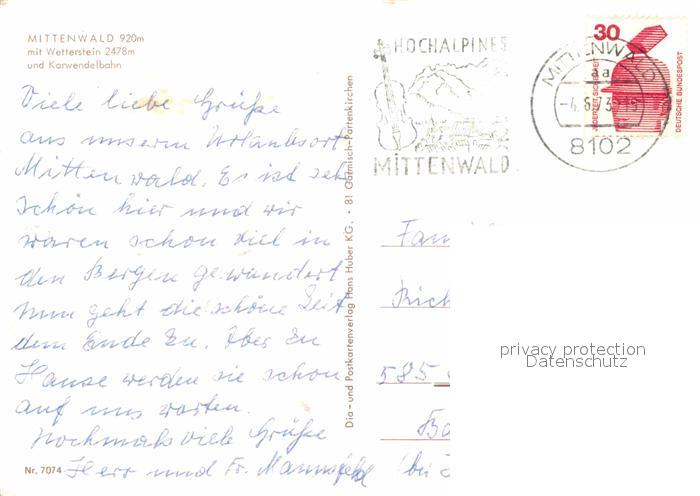 MITTENWALD 920m
mit Wetterstein 2478m
und Karwendelbahn
Viele liebe Grüße
aus unserm Urlaubsort
Mittenwald. Es ist sehr
schön hier und wir
waren schon viel in
den Bergen gewandert
nun geht die schöne Zeit
dem Ende zu. Aber zu
Hause werden sie schon
auf uns warten.
Nochmals viele Grüße
Herr und Fr. Mannsfeld
Nr. 7074
Dia- und Postkartenverlag Hans Huber KG. • 81 Garmisch-Partenkirchen
HOCHALPINES
MITTENWALD
MITTENWALD
aa
8102
30
JEDERZEIT SICHERHEIT
DEUTSCHE BUNDESPOST
Fam
Rich
585
Ba
(bei
privacy protection
Datenschutz